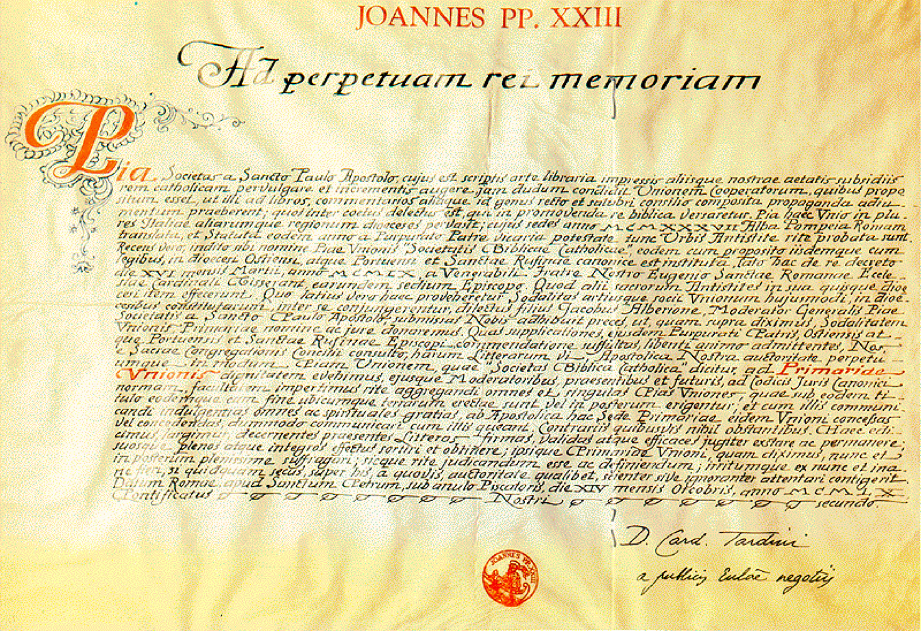 JOANNES PP. XXIII
Ad perpetuam rei memoriam
Pia Societas a Sancto Paulo Apostolo, cujus est scriptis arte libraria impressis aliisque nostrae aetatis subsidiis
rem catholicam pervulgare et incrementis augere, jam dudum condidit Unionem Cooperatorum, quibus propo
situm esset, ut ad libros, commentarios aliaque id genus recto et salubri consilio composita propaganda adju
mentum praeberent; quos inter coetus delectus est, qui in promovenda re biblica versaretur. Pia haec Unio in plu
res Italiae aliarumque regionum dioeceses permisit; cujus sedes anno MCMXXXVII Alba Pompeia Romam
translata, et Statuta eodem anno a Purpurato Patre vicaria potestate tunc Urbis Antistite rite probata sunt.
Recens vero, indito sibi nomine "Piae Unionis Societatis Biblicae Catholicae", eodem cum proposito iisdemque cum
legibus, in dioecesi Ostiensi, atque Portuensi et Sanctae Rufinae canonice est instituta, lato hac de re decreto
die XVI mensis Martii, anno MCMLX, a Venerabili Fratre Nostro Eugenio Sanctae Romanae Eccle
siae Cardinali Tisserant, earundem sedium Episcopo. Quod alii sacrorum Antistites in sua quisque dioe
cesi item effecerunt. Quo latius vero haec proveheretur Sodalitas artiusque socii Unionum hujusmodi, in dioe
cesibus constitutarum, inter se conjungerentur, dilectus filius Jacobus Alberione, Moderator Generalis Piae
Societatis a Sancto Paulo Apostolo, submissas Nobis adhibuit preces, ut, quam supra diximus, Sodalitatem
Unionis Primariae nomine ac jure donaremus. Quas supplicationes, ejusdem Purpurati Patris, Ostiensis at
que Portuensis et Sanctae Rufinae Episcopi, commendatione suffultas, libenti animo admittentes, Nos
e Sacrae Congregationis Concilii consulto, harum Litterarum vi, Apostolica Nostra auctoritate, perpetu
umque in modum Piam Unionem, quae "Societas Biblica Catholica" dicitur, ad Primariae
Unionis dignitatem evehimus, ejusque Moderatoribus, praesentibus et futuris, ad Codicis Juris Canonici
normam, facultatem impertimus rite aggregandi omnes et singulas Pias Uniones, quae sub eodem ti
tulo eodemque cum fine ubicumque terrarum erectae sunt vel in posterum erigentur, et cum illis communi
candi indulgentias omnes ac spirituales gratias, ab Apostolica hac Sede Primariae eidem Unioni concessas
vel concedendas, dummodo communicari cum illis queant. Contrariis quibusvis nihil obstantibus. Haec edi
cimus, largimur, decernentes praesentes Litteras firmas, validas atque efficaces jugiter exstare ac permanere;
suosque plenos atque integros effectus sortiri et obtinere; ipsique Primariae Unioni, quam diximus, nunc et
in posterum plenissime suffragari; sicque rite judicandum esse ac definiendum; irritumque ex nunc et ina
ne fieri, si quidquam secus, super his, a quovis, auctoritate qualibet, scienter sive ignoranter attentari contigerit.
Datum Romae, apud Sanctum Petrum, sub anulo Piscatoris, die XIV mensis Octobris, anno MCMLX,
Pontificatus Nostri secundo.
D. Card. Tardini
a publicis Eccl̄ae negotiis
JOANNES PP. XXIII